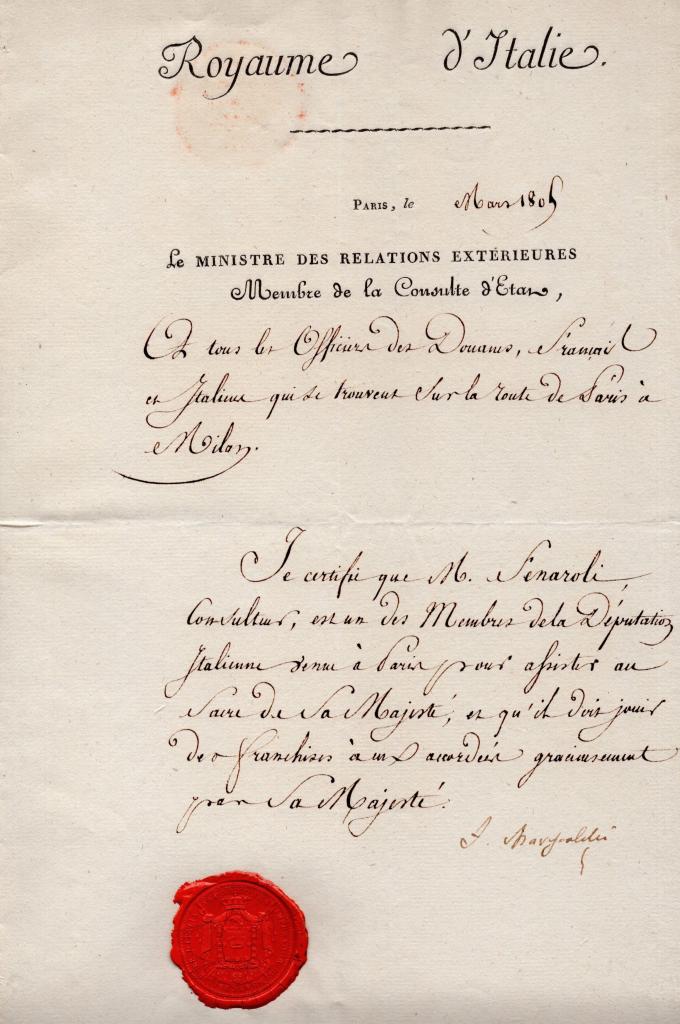 Royaume d'Italie.
PARIS, le Mars 1805
Le MINISTRE DES RELATIONS EXTÉRIEURES
Membre de la Consulte d'Etat,
A tous les Officiers des Douanes, Français
et Italiens qui se trouvent sur la route de Paris à
Milan.
Je certifie que M. Fenaroli,
Consulteur, est un des Membres de la Députation
Italienne venue à Paris pour assister au
Sacre de Sa Majesté, et qu'il doit jouir
des franchises à eux accordées gracieusement
par Sa Majesté.
F. Marescalchi